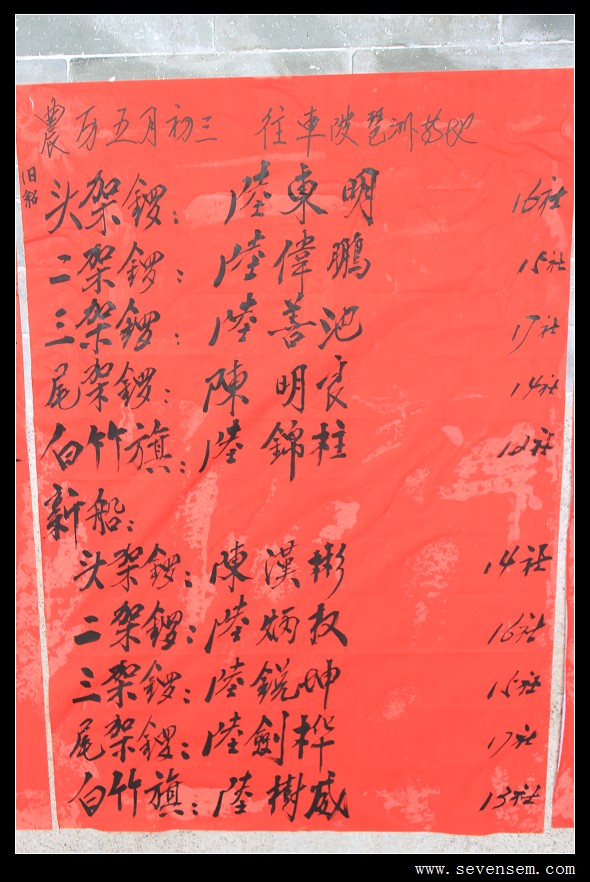 農历五月初三 往車陂琶洲等地
旧船
头架鑼：陸東明 16社
二架鑼：陸偉鵬 15社
三架鑼：陸善池 17社
尾架鑼：陳明 14社
白竹旗：陸錦柱 12社
新船：
头架鑼：陳漢彬 14社
二架鑼：陸炳权 16社
三架鑼：陸銳坤 15社
尾架鑼：陸劍桦 17社
白竹旗：陸樹威 13社
www.sevensem.com